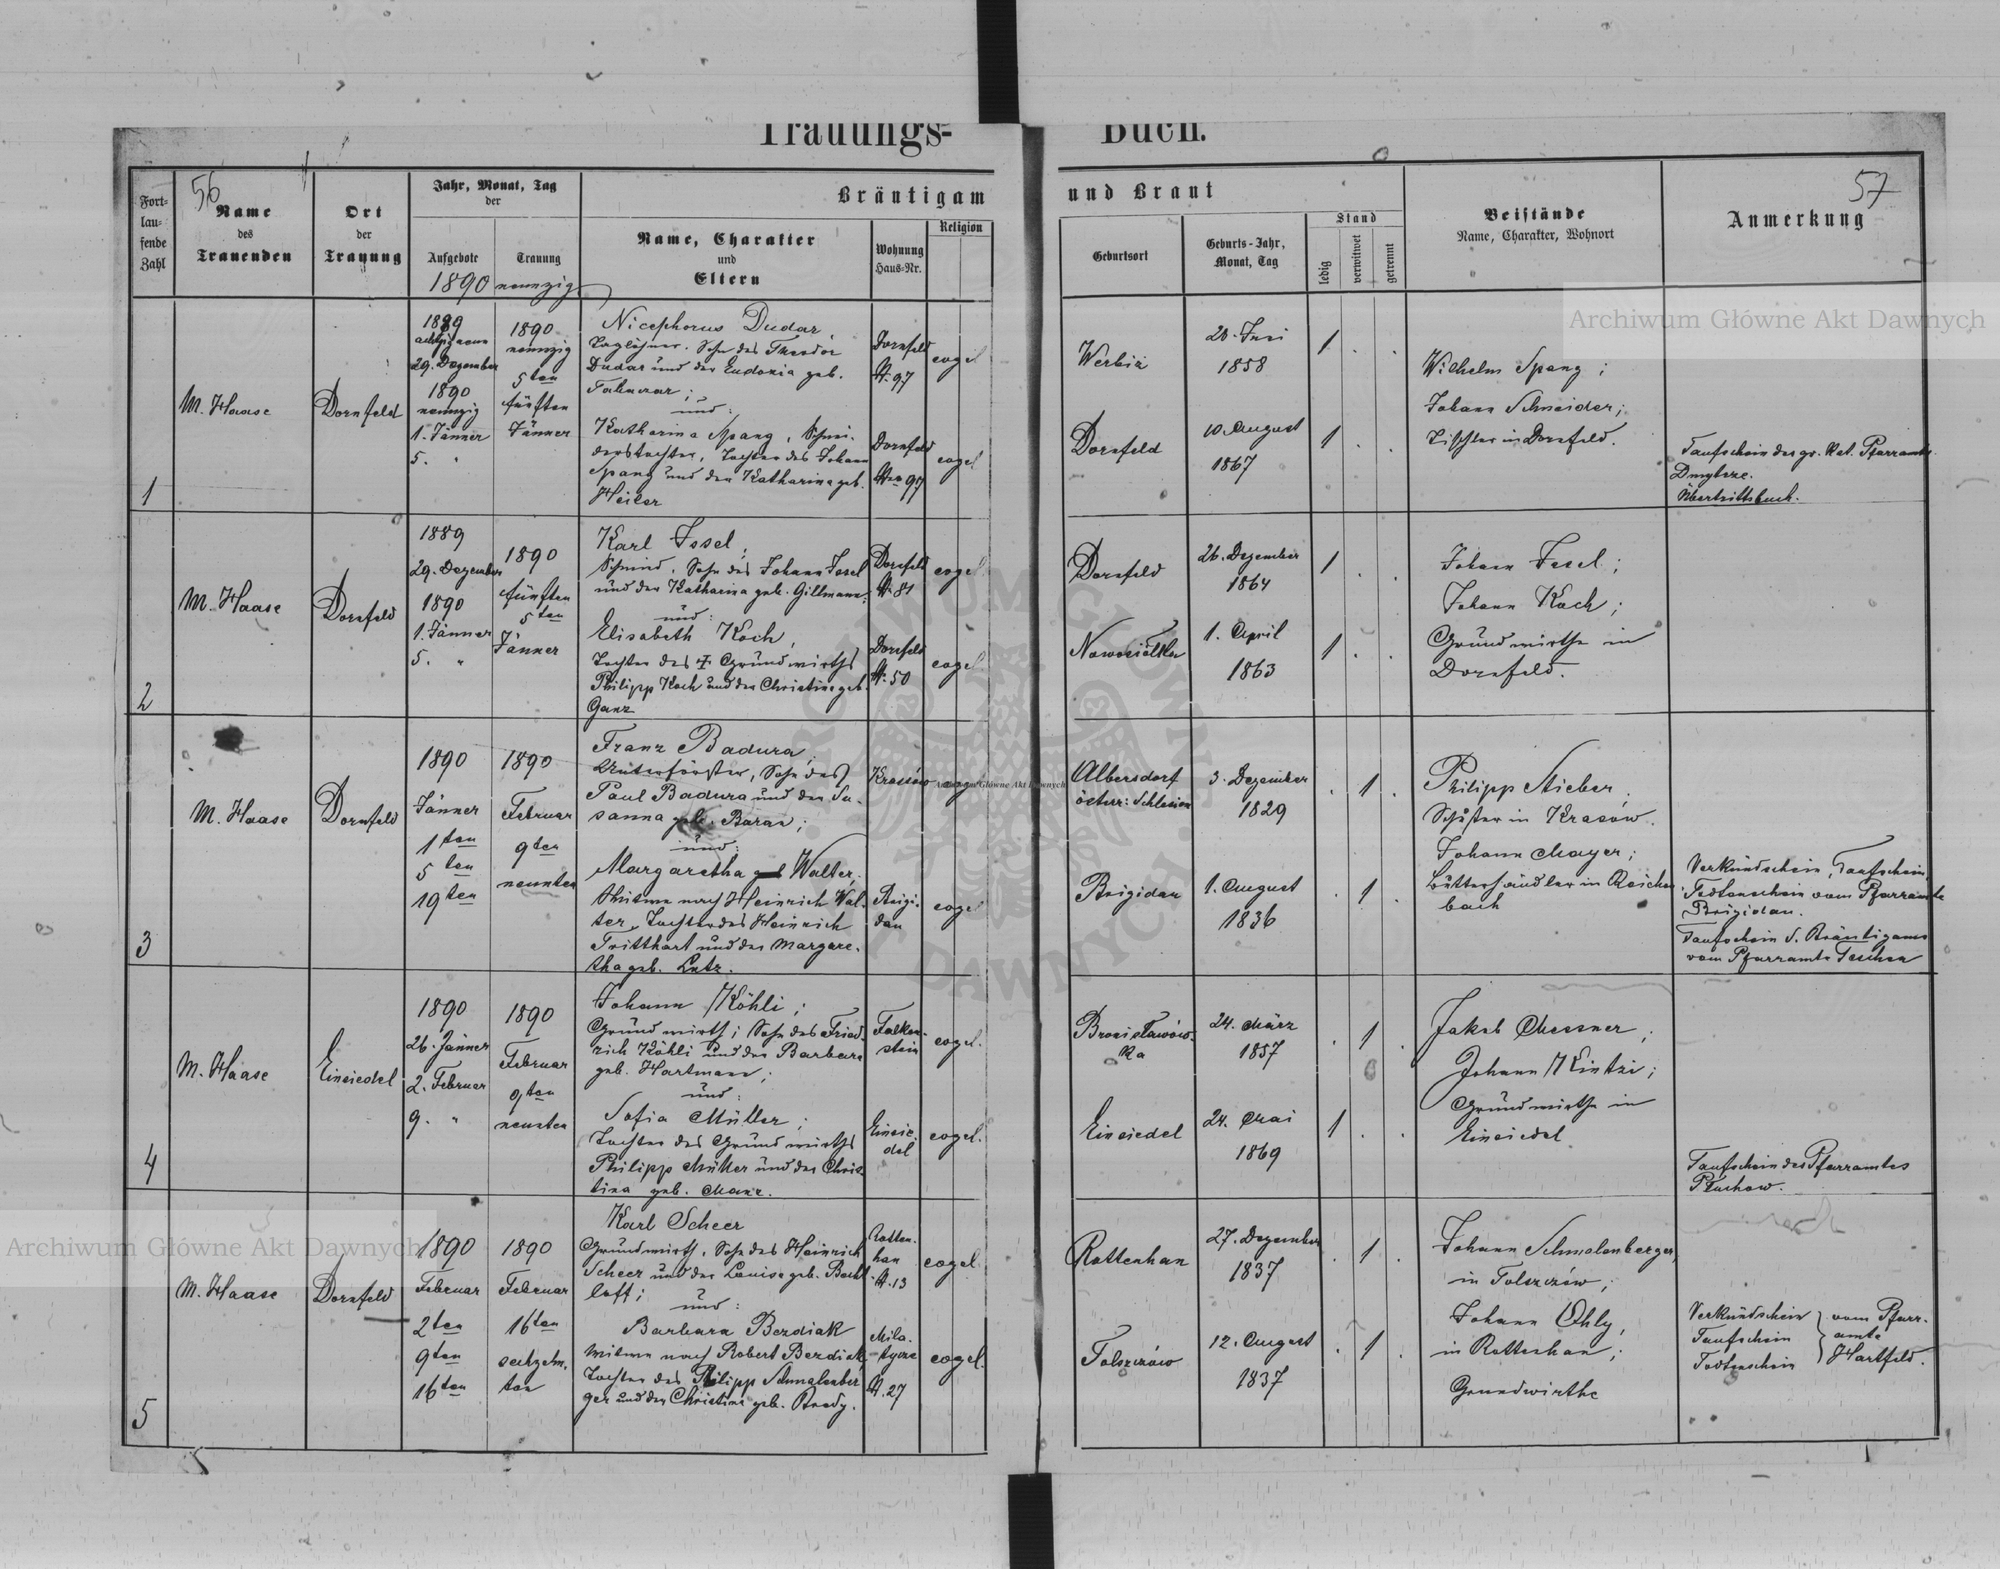 Trauungs- Buch.
56
57
Fort-
lau-
fende
Zahl
Name
des
Trauenden
Ort
der
Trauung
Jahr, Monat, Tag
der
Aufgebote
Trauung
1890 neunzig
Bräutigam
und Braut
Name, Charakter
und
Eltern
Wohnung
Haus-Nr.
Religion
Geburtsort
Geburts-Jahr,
Monat, Tag
Stand
ledig
verwitwet
getrennt
Beistände
Name, Charakter, Wohnort
Anmerkung
1
M. Haase
Dornfeld
1889
29. Dezember
1890
neunzig
1. Jänner
5. "
1890
neunzig
5ten
fünften
Jänner
Nicephorus Dudar,
Taglöhner. Sohn des Theodor
Dudar und der Eudoxia geb.
und:
Katharina Spang, Schnei-
derstochter, Tochter des Johann
Spang und der Katharina geb.
Heiler
Dornfeld
N. 97
Dornfeld
Nro 97
evgel
evgel
Werbiz
Dornfeld
1858
10. August
1867
1 . .
1 . .
Wilhelm Spang;
Johann Schneider;
Tischler in Dornfeld.
Taufschein des gr. Kat. Pfarramts
Dmytrze.
Übertrittsbuch.
2
M. Haase
Dornfeld
1889
29. Dezember
1890
1. Jänner
5. "
1890
fünften
5ten
Jänner
Karl Jesel,
Schmied, Sohn des Johann Jesel
und der Katharina geb. Gillmann;
und:
Elisabeth Koch,
Tochter des † Grundwirths
Philipp Koch und der Christina geb.
Ganz
Dornfeld
N. 81
Dornfeld
N. 50
evgel
evgel
Dornfeld
26. Dezember
1864
1. April
1863
1 . .
1 . .
Johann Jesel;
Johann Koch;
Grundwirthe in
Dornfeld.
3
M. Haase
Dornfeld
1890
Jänner
1ten
5ten
19ten
1890
Februar
9ten
neunten
Franz Badura
Unterförster, Sohn des
Paul Badura und der Su-
sanna geb. Baran;
und:
Margaretha Walter,
Witwe nach Heinrich Wal-
ter, Tochter des Heinrich
Tritthart und der Margare-
tha geb. Lutz.
Krasów
Brigi-
dau
evgel
Albersdorf
österr: Schlesien
Brigidau
3. Dezember
1829
1. August
1836
. 1 .
. 1 .
Philipp Stieber,
Schuster in Krasów.
Johann Mayer;
in Reichen-
bach
Verkündschein, Taufschein,
Todtenschein vom Pfarramte
Brigidau.
Taufschein d. Bräutigams
vom Pfarramte Teschen
4
M. Haase
Einsiedel
1890
26. Jänner
2. Februar
9. "
1890
Februar
9ten
neunten
Johann Köhli;
Grundwirth; Sohn des Fried-
rich Köhli und der Barbara
geb. Hartmann;
und:
Sofia Müller;
Tochter des Grundwirths
Philipp Müller und der Chris-
tina geb. Manz.
Falken-
stein
Einsie-
del
evgel.
evgel.
Bronisławów-
ka
Einsiedel
24. März
1857
24. Mai
1869
. 1 .
1 . .
Jakob Messner;
Johann Kintzi;
Grundwirthe in
Einsiedel
Taufschein des Pfarramtes
5
M. Haase
Dornfeld
1890
Februar
2ten
9ten
16ten
1890
Februar
16ten
sechzehn-
ten
Karl Scheer
Grundwirth, Sohn des Heinrich
Scheer und der Louise geb. Bech-
loft;
und:
Barbara Berdiak
Witwe nach Robert Berdiak
Tochter des Philipp Schmalenber
ger und der Christina geb. Bredy.
Rotten-
han
N. 13
N. 27
evgel.
evgel.
Rottenhan
Tolszczów
27. Dezember
1837
12. August
1837
. 1 .
. 1 .
Johann Schmalenberger,
in Tolszczów;
Johann Ohly,
in Rottenhan;
Grundwirthe
Verkündschein
Taufschein
Todtenschein
vom Pfarr-
amte
Hartfeld.
Archiwum Główne Akt Dawnych
Archiwum Główne Akt Dawnych
Archiwum Główne Akt Dawnych
ARCHIWUM GŁÓWNE AKT DAWNYCH